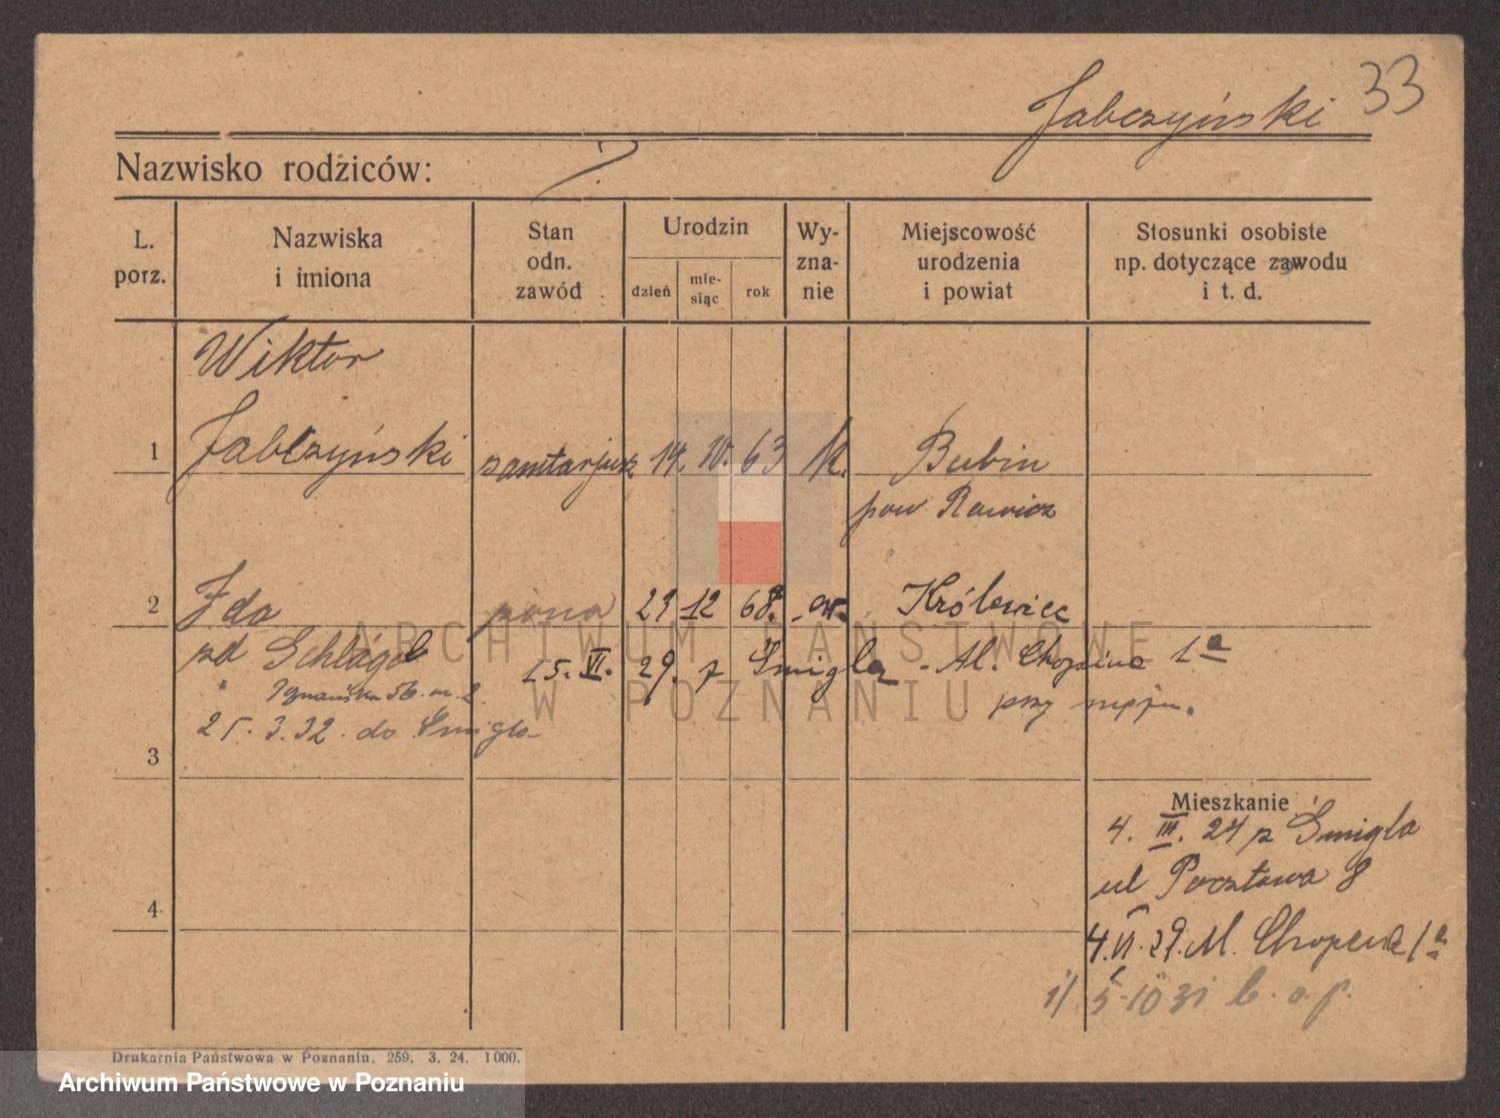 33
Jabczyński
Nazwisko rodziców: ?
L. porz.
Nazwiska i imiona
Stan odn. zawód
Urodzin
dzień
mie-
siąc
rok
Wy-
zna-
nie
Miejscowość
urodzenia
i powiat
Stosunki osobiste
np. dotyczące zawodu
i t. d.
Wiktor
1 Jabczyński sanitarjusz 14. 10. 63 k. Bubin
pow Rawicz
2 Ida żona 29 12 68. ew. Królewiec
zd Schlägel 15. VI. 29. z Śmigla - Al. Chopina 1a
przy
25. 3. 32. do Śmigla
3
Mieszkanie
4. III. 24 z Śmigla
ul Pocztowa 8
4
4. VI. 29. Al. Chopena 1a
5-10 31 b. o. p.
Drukarnia Państwowa w Poznaniu. 259. 3. 24. 1000.
ARCHIWUM PAŃSTWOWE
W POZNANIU
Archiwum Państwowe w Poznaniu